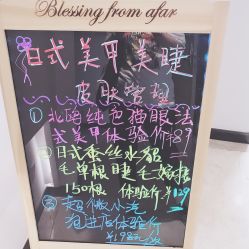 Blessing from afar
日式美甲美睫
皮肤管理
①北欧纯色猫眼法
式美甲体验价¥89
②日式蚕丝水貂
毛单根睫毛嫁接
150根 体验价¥129
③超微小泡
泡进店体验价
¥198元一次